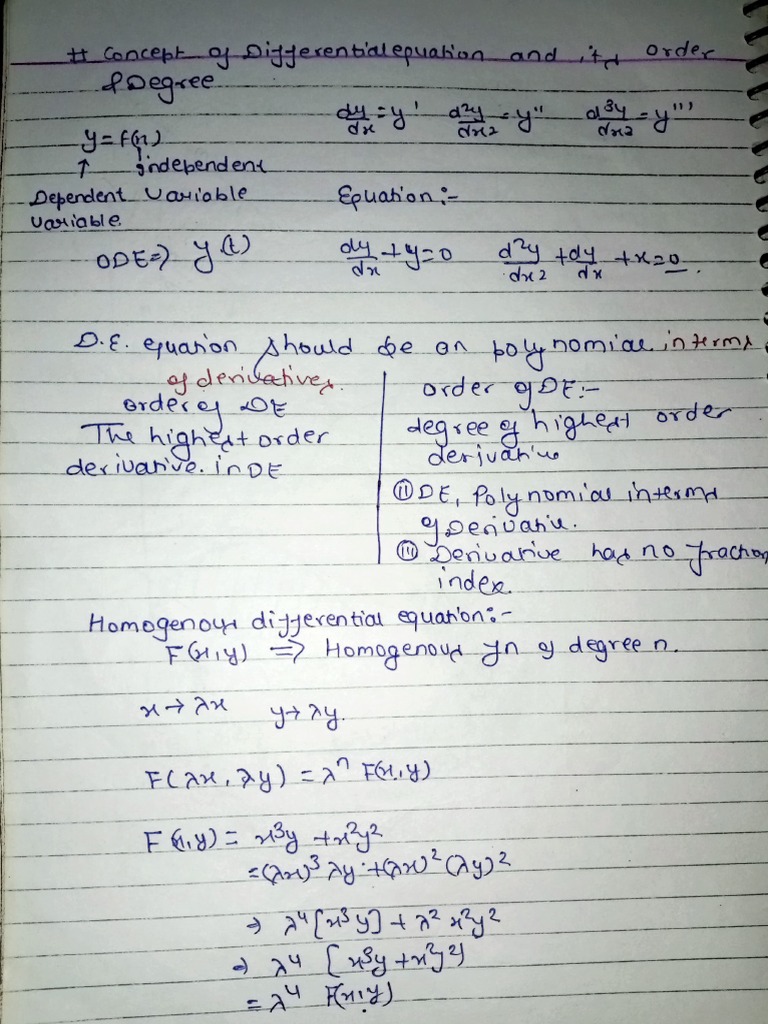 # Concept of Differential equation and its order
& Degree
dy/dx = y' d²y/dx2 = y'' d³y/dx3 = y'''
y = f(x)
↑ independent
Dependent Variable Equation:-
Variable.
ODE => y(t) dy/dx + y = 0 d²y/dx2 + dy/dx + x = 0.
D.E. equation should be an polynomial in terms
of derivatives.
order of DE
The highest order
derivative. in DE
order of DE:-
degree of highest order
derivative
(ii) DE, Polynomial in terms
of Derivative.
(iii) Derivative has no fraction
index.
Homogenous differential equation:-
F(x,y) => Homogenous fn of degree n.
x → λx y → λy.
F(λx, λy) = λⁿ F(x,y)
F(x,y) = x³y + x²y²
= (λx)³ λy + (λx)² (λy)²
⇒ λ⁴ [x³y] + λ² x²y²
⇒ λ⁴ [x³y + x²y²]
= λ⁴ F(x,y)